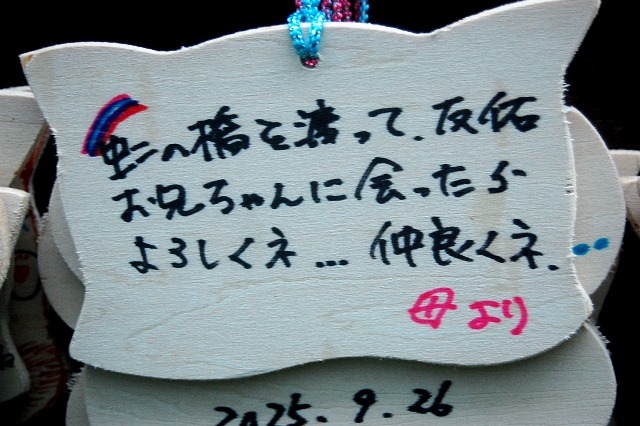 虹の橋を渡って、友佑
お兄ちゃんに会ったら
よろしくネ… 仲良くネ.
母より
2025.9.26